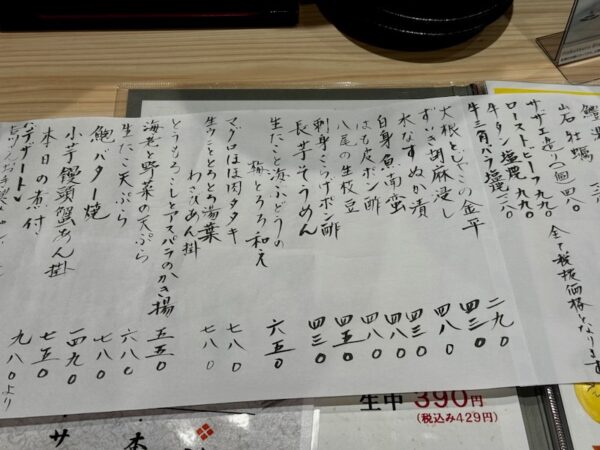 岩牡蠣
サザエ造り(一個)四八〇
ローストビーフ 九九〇
牛タン塩焼 九九〇
牛三角バラ塩焼
全て税抜価格となります
大根とじゃこの金平 二九〇
ずいき胡麻浸し 四三〇
水なすぬか漬 四八〇
白身魚南蛮 四三〇
はも皮ポン酢 四八〇
八尾の生枝豆 四八〇
刺身くらげポン酢 四五〇
長芋そうめん 四三〇
生だこと漬ぶどうの
梅とろろ和え 六五〇
マグロほほ肉タタキ 七八〇
生ウニとろとろ湯葉
わさびあん掛 七八〇
とうもろこしとアスパラのかき揚 五五〇
海老と野菜の天ぷら 六八〇
生だこ天ぷら 七八〇
鮑バター焼 一四九〇
小芋饅頭蟹あん掛 七五〇
本日の煮付 九八〇より
デザート
生中 390円
(税込み429円)